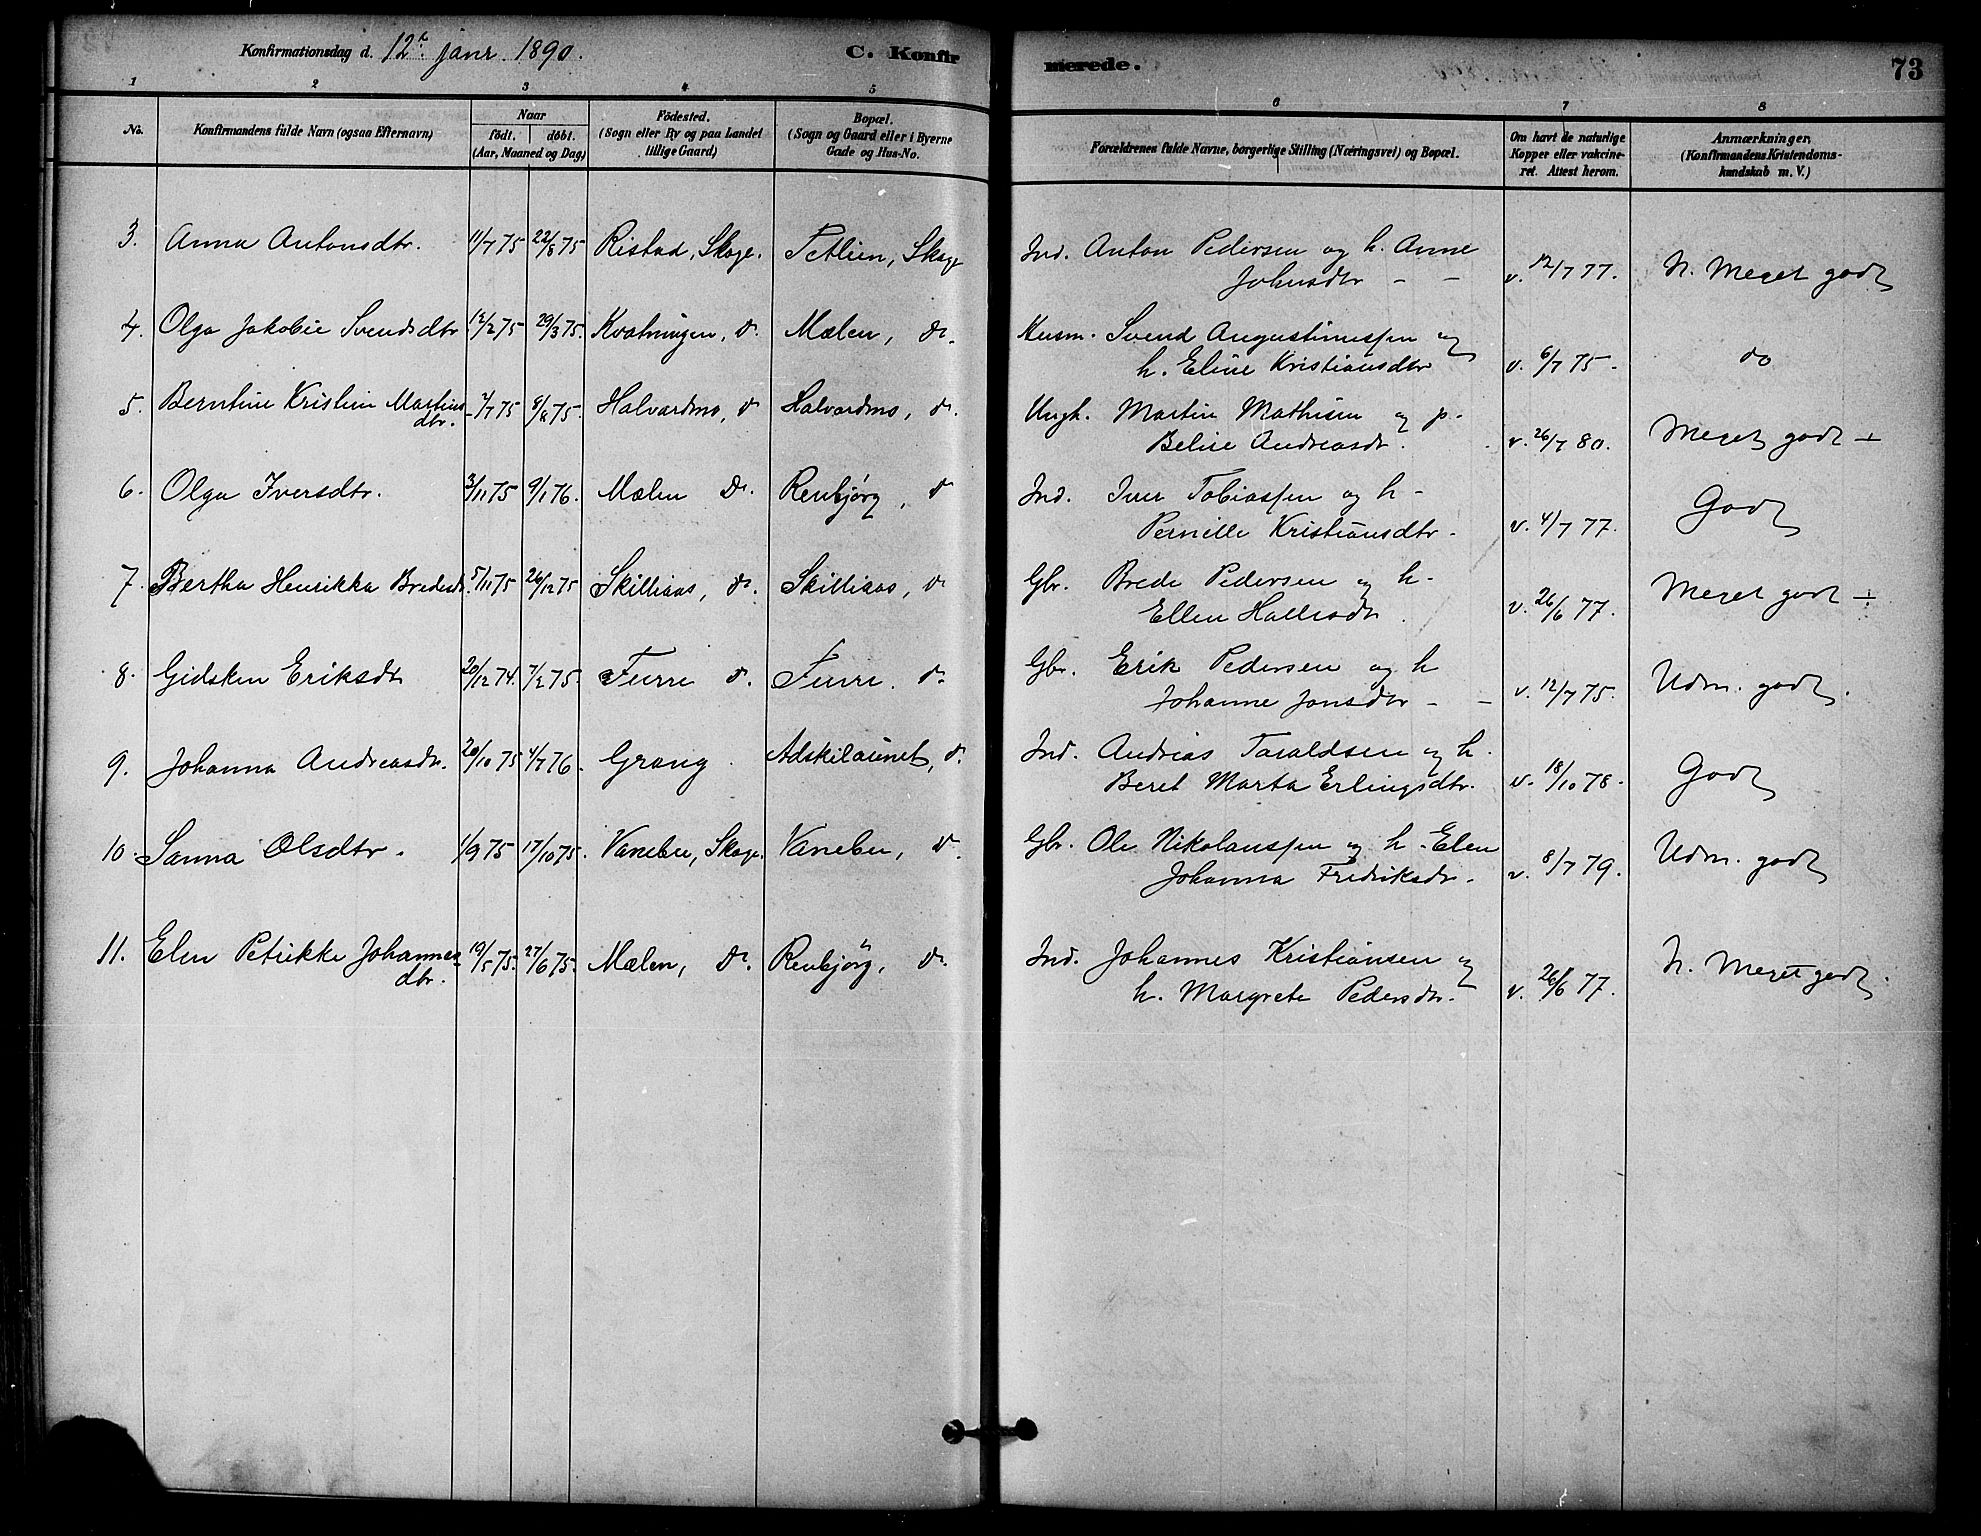 Konfirmationsdag d. 12te janr. 1890.
C. Konfirmerede.
73
1 2 3 4 5 6 7 8
No.
Konfirmandens fulde Navn (ogsaa Efternavn)
Naar
födt. döbt.
(Aar, Maaned og Dag)
Födested.
(Sogn eller By og paa Landet
tillige Gaard)
Bopæl.
(Sogn og Gaard eller i Byerne
Gade og Hus-No.
Forældrenes fulde Navne, borgerlige Stilling (Næringsvei) og Bopæl.
Om havt de naturlige
Kopper eller vakcine-
ret. Attest herom.
Anmærkninger.
(Konfirmandens Kristendoms-
kundskab m. V.)
3. Anna Antonsdtr. 11/7 75 22/8 75 Ristad, Skage. Tetlien, Skage Ind. Anton Pedersen og h. Anne
Johnsdtr - - v. 12/7 77. N. Meget godt
4. Olga Jakobie Svendsdtr 12/2 75 29/3 75. Kvatningen, do. Mælen, do. Husm. Svend Augustinussen og
h. Eline Kristiansdtr v. 6/7 75. do
5. Berntine Kristine Martins
dtr. 7/7 75 8/8 75. Halvardmo, do Halvardmo, do. Ungk. Martin Mathisen og p.
Beline Andreasdr. v. 26/7 80. Meget godt ÷
6. Olga Iversdtr. 3/11 75 9/1 76. Mælen Do. Renbjörg, do Ind. Iver Tobiassen og h -
Pernille Kristiansdtr. v. 4/7 77. Godt
7. Bertha Henrikka Bredesdr. 5/11 75 26/12 75 Skilliaas, do. Skilliaas, do Gbr. Brede Pedersen og h -
Ellen Hallesdr. v. 26/6 77. Meget godt ÷
8. Gidsken Eriksdr 20/12 74. 7/2 75. Furre do. Furre. do. Gbr. Erik Pedersen og h
Johanne Jonsdtr - - v. 12/7 75. Udm. godt.
9. Johanna Andreasdr. 20/10 75 4/7 76. Grong. Adskilaunet, do. Ind. Andreas Taraldsen og h.
Beret Marta Erlingsdtr. v. 18/10 78. Godt
10. Sanna Olsdtr. 1/9 75 17/10 75. Vanebu, Skage. Vanebu, do. Gbr. Ole Nikolaussen og h. Elen
Johanna Fredriksdr. v. 8/7 79. Udm. godt
11. Elen Petrikke Johannes
dtr. 19/5 75. 27/6 75. Mælen, do. Renbjörg, do. Ind. Johannes Kristiansen og
h. Margrete Pedersdr. v. 26/6 77. N. Meget godt.